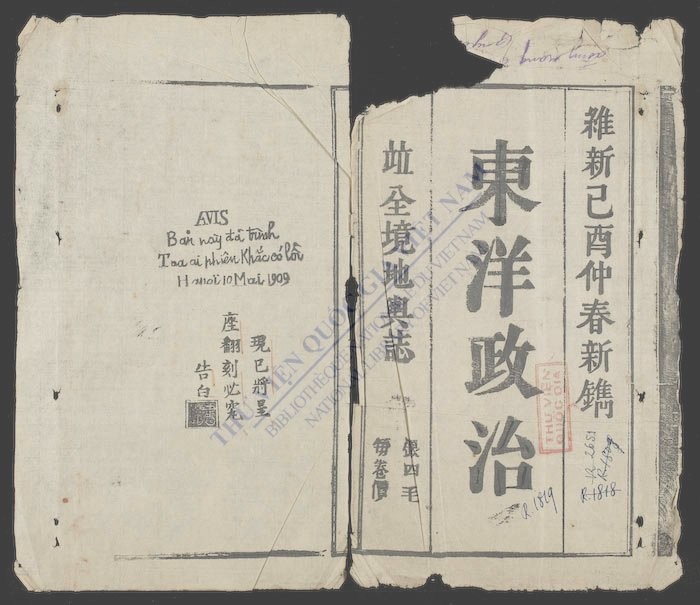 維新己酉仲春新鐫
東洋政治
竝全境地輿誌
張四毛
每卷價
THƯ VIỆN
QUỐC GIA
R.2681
R.1818
R.1819
AVIS
Bản này đã trình
Toa ai phiên Khắc có lỗi
Hanoi 10 Mai 1909
現已將呈
座翻刻必究
告白
THƯ VIỆN QUỐC GIA VIỆT NAM
BIBLIOTHÈQUE NATIONALE DU VIETNAM
NATIONAL LIBRARY OF VIETNAM